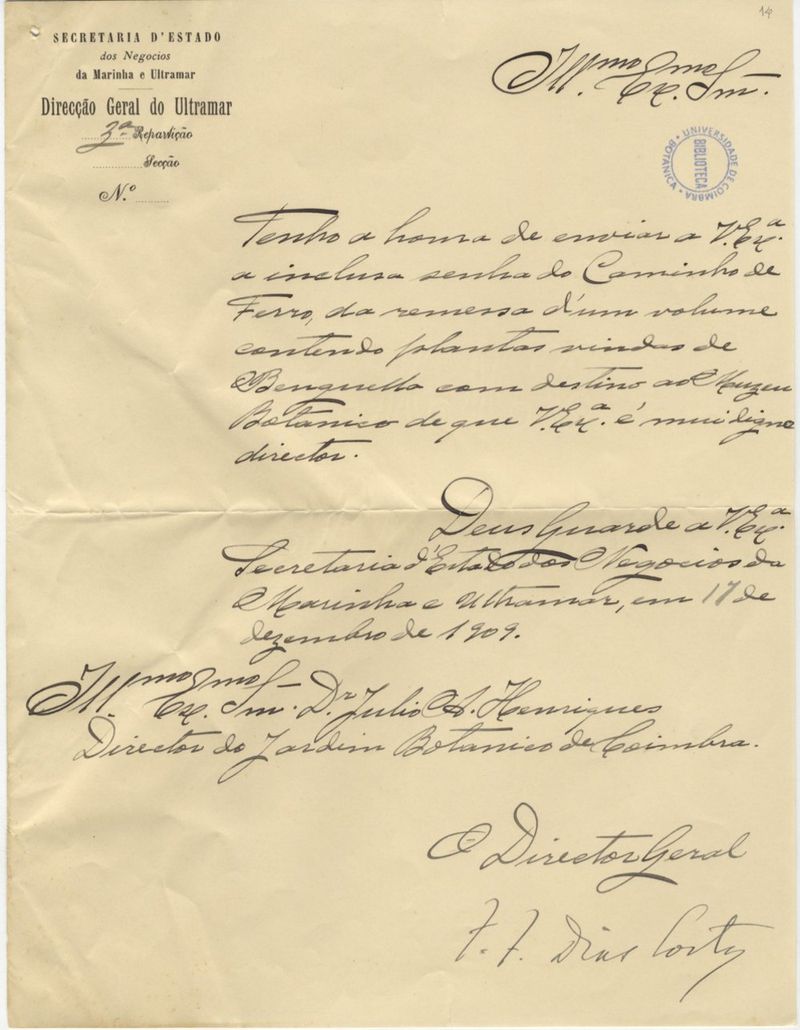 14
SECRETARIA D'ESTADO
dos Negocios
da Marinha e Ultramar
Direcção Geral do Ultramar
3ª Repartição
Secção
N.º
Ill.mo Ex.mo Snr.
UNIVERSIDADE DE COIMBRA • BOTANICA •
BIBLIOTECA
Tenho a honra de enviar a V. Ex.ª
a inclusa senha do Caminho de
Ferro, da remessa d'um volume
contendo plantas vindas de
Benguella com destino ao Muzeu
Botanico de que V. Ex.ª é mui digno
director.
Deus Guarde a V. Ex.ª
Secretaria d'Estado dos Negocios da
Marinha e Ultramar, em 17 de
dezembro de 1909.
Ill.mo Ex.mo Snr. Dr Julio A. Henriques
Director do Jardim Botanico de Coimbra.
O Director Geral
F. F. Dias Costa